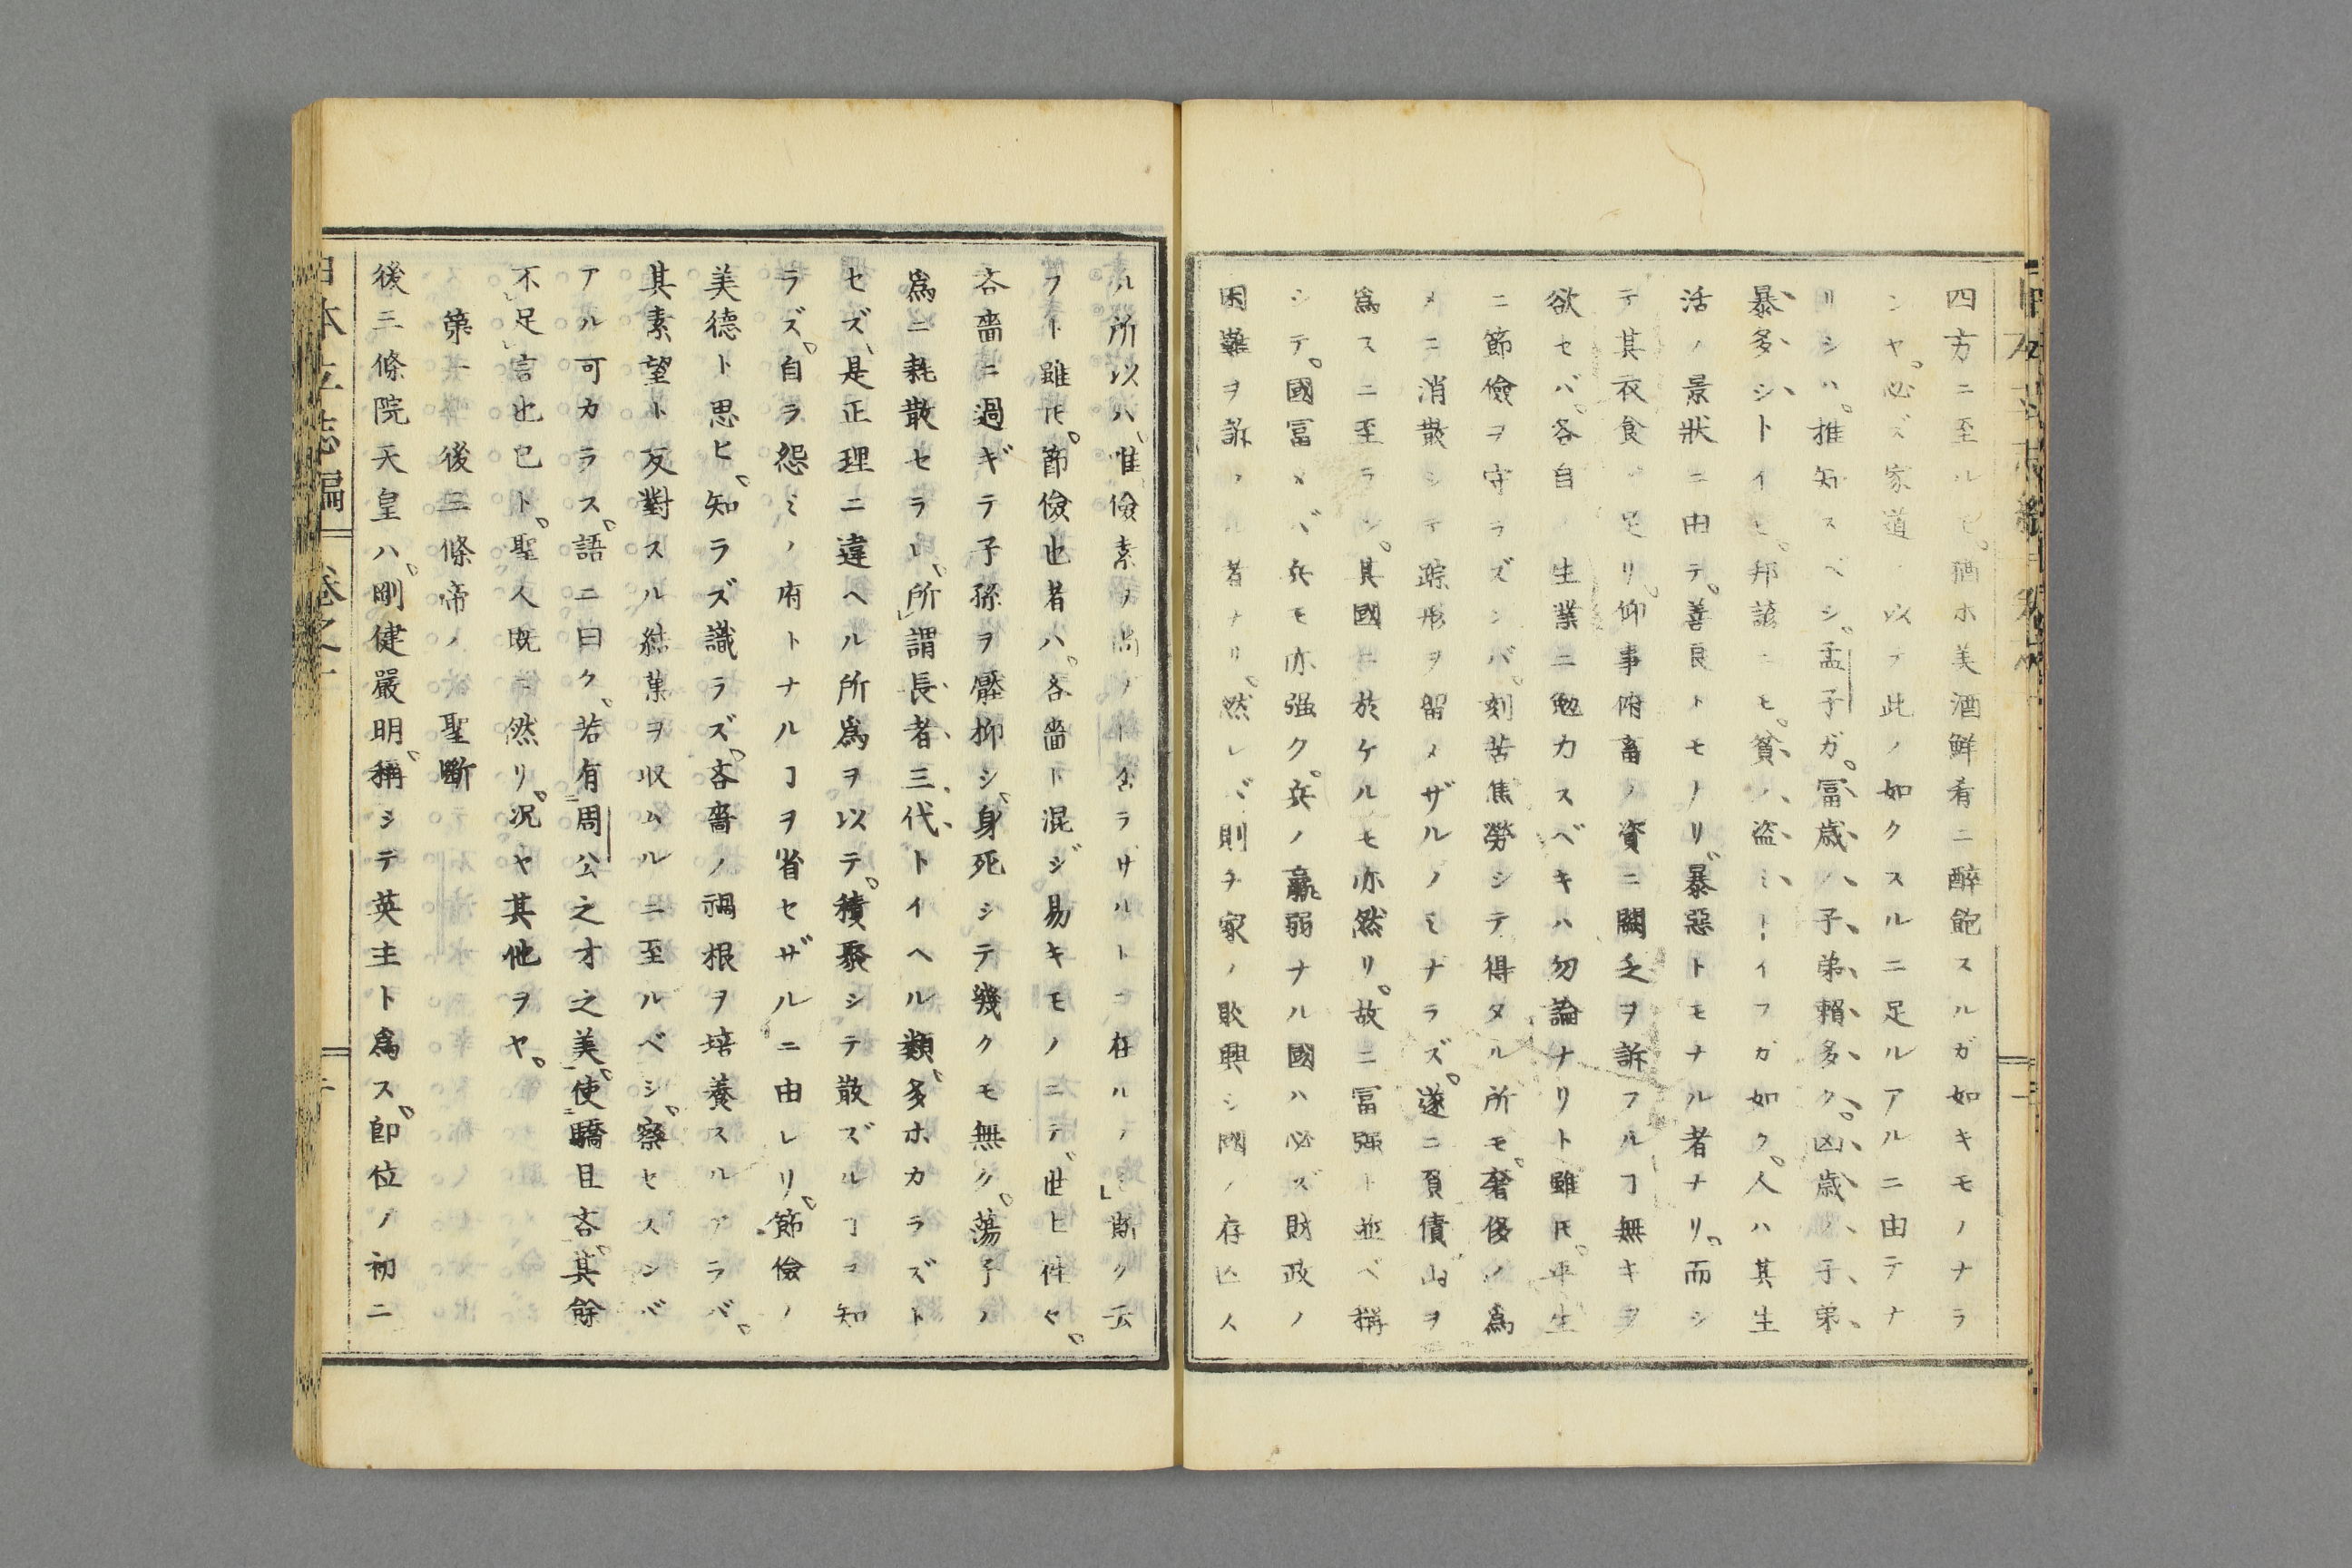 四方ニ至ルモ。酒ホ美酒鮮肴ニ醉飽スルガ如キモノナラ
ンヤ。必ズ家道ヲ以テ此ノ如クスルニ足ルアルニ由テナ
リシハ。推知スベシ。孟子ガ。冨歳ノ子弟賴多ク。凶歳ノ子弟
暴多シトイヒ。邦諺ニモ。貧ノ盗ミトイフガ如ク。人ハ其生
活ノ景狀ニ由テ。善良トモナリ。暴惡トモナル者ナリ。而シ
テ其衣食ニ足リ。仰事俯畜ノ資ニ闕乏ヲ訴フルヿ無キヲ
欲セバ。各自ノ生業ニ勉力スベキハ勿論ナリト雖𪜈。平生
ニ節儉ヲ守ラズンバ。刻苦焦勞シテ得タル所モ。奢侈ノ爲
メニ消散シテ踪形ヲ留メザルノミナラズ。遂ニ負債山ヲ
爲スニ至ラン。其國ニ於ケルモ亦然リ。故ニ冨强ト並ベ稱
シテ。國冨メバ兵モ亦强ク。兵ノ羸弱ナル國ハ必ズ財政ノ
困難ヲ訴フル者ナリ。然レバ則チ家ノ敗興シ國ノ存亡ス
ル所以ハ、惟儉素ノ尚ブト尚ラサルトニ在ルノミ」斯ク云
フト雖𪜈。節儉也者ハ。吝嗇ト混ジ易キモノニテ、世ヒ件々。
吝嗇ニ過ギテ子孫ヲ壓抑シ、身死シテ幾クモ無ク。蕩子ノ
爲ニ耗散セラレ、所謂長者三代トイヘル類、多ホカラズト
セズ、是正理ニ違ヘル所爲ヲ以テ。積聚シテ散ズルヿヲ知
ラズ。自ラ怨ミノ府トナルヿヲ省セザルニ由レリ。節儉ノ
美德ト思ヒ。知ラズ識ラズ。吝嗇ノ禍根ヲ培養スルアラバ。
其素望ト反對スル結菓ヲ収ムルニ至ルベシ。察セスンバ
アル可カラス。語ニ曰ク。若有周公之才之美。使驕且吝。其餘
不足言也已ト。聖人既ニ然リ。況ヤ其他ヲヤ。
第一 後三條帝ノ聖斷
後三條院天皇ハ。剛健嚴明。稱シテ英主ト爲ス。卽位ノ初ニ
日本立志編 卷之二